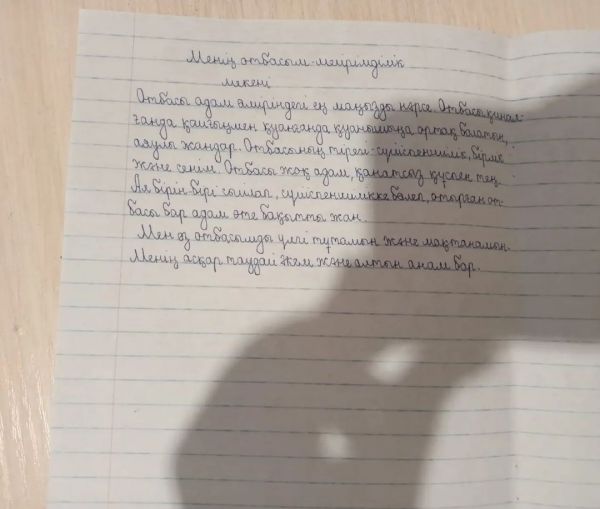 Менің отбасым-мейірімділік
мекені
Отбасы адам өміріндегі ең маңызды нәрсе. Отбасы қинал-
ғанда қайғыңмен қуанғанда қуанышыңа ортақ болатын,
аяулы жандар. Отбасының тірегі-сүйіспеншілік, бірлік
және сенім. Отбасы жоқ адам, қанатсыз құспен тең.
Ал бірін-бірі сыйлап, сүйіспеншілікке бөлеп, отырған от-
басы бар адам өте бақытты жан.
Мен өз отбасымды үлгі тұтамын және мақтанамын.
Менің асқар таудай әкем және алтын анам бар.